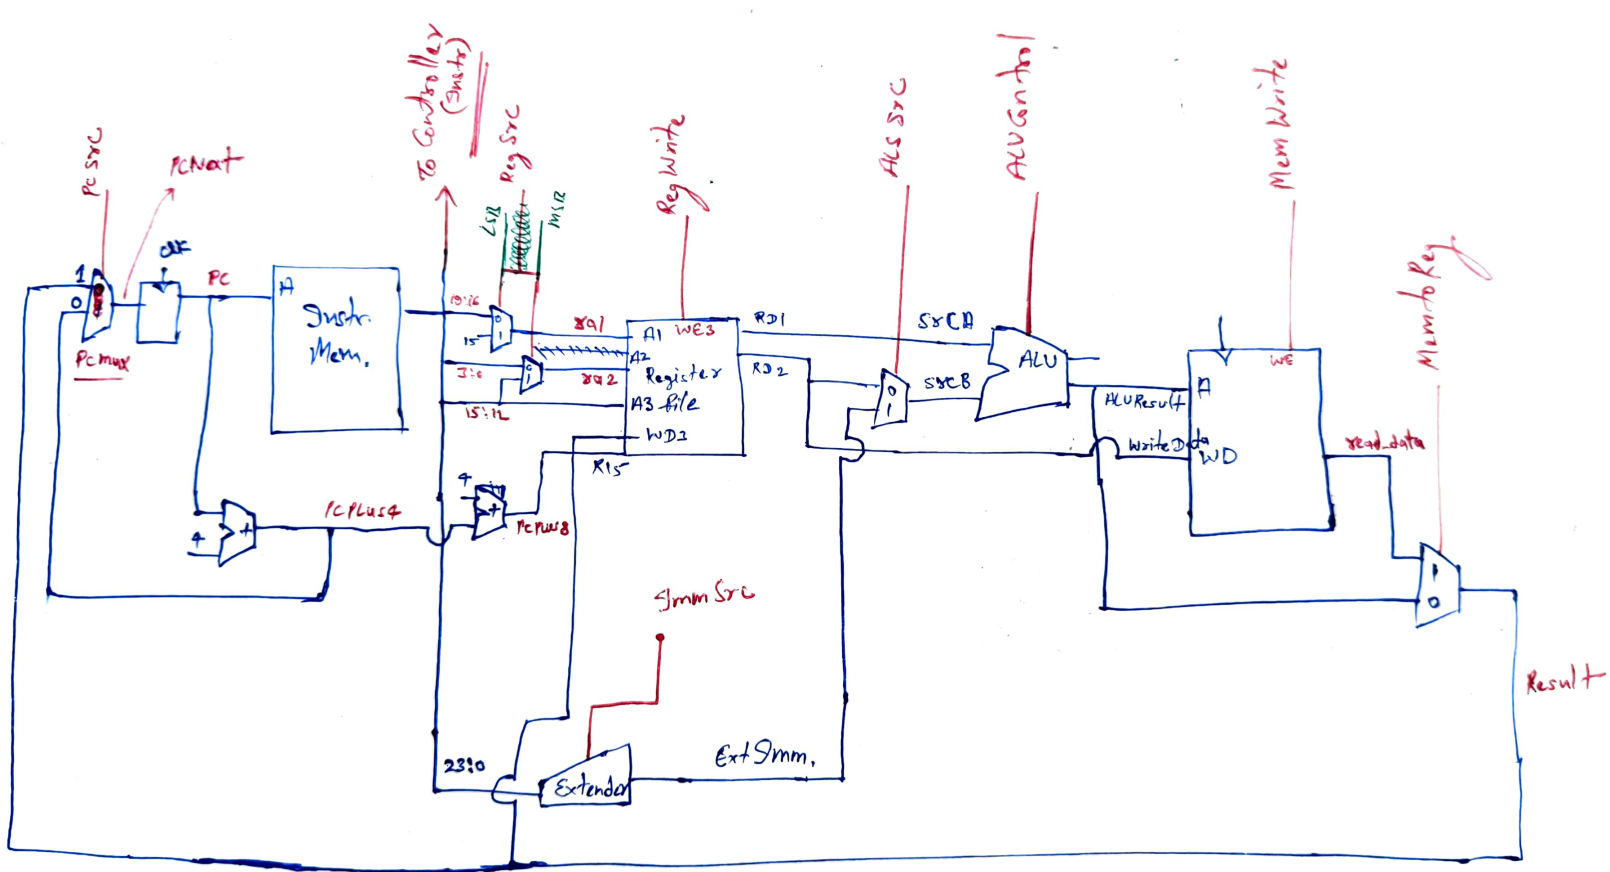 To Controller
(Instr)
PCSrc
PCNext
RegSrc
LSB
MSB
RegWrite
ALSSrC
ALUControl
MemWrite
MemtoReg
clk
PC
1
0
PCmux
A
Instr.
Mem.
19:16
15
0
1
ra1
3:0
0
1
ra2
15:12
A1
WE3
A2
Register
A3 file
WD3
R15
RD1
RD2
SrCA
0
1
SrCB
ALU
ALUResult
WriteData
A
WE
WD
read_data
1
0
Result
4
+
PCPLus4
4
+
PCPlus8
ImmSrc
23:0
Extender
ExtImm.